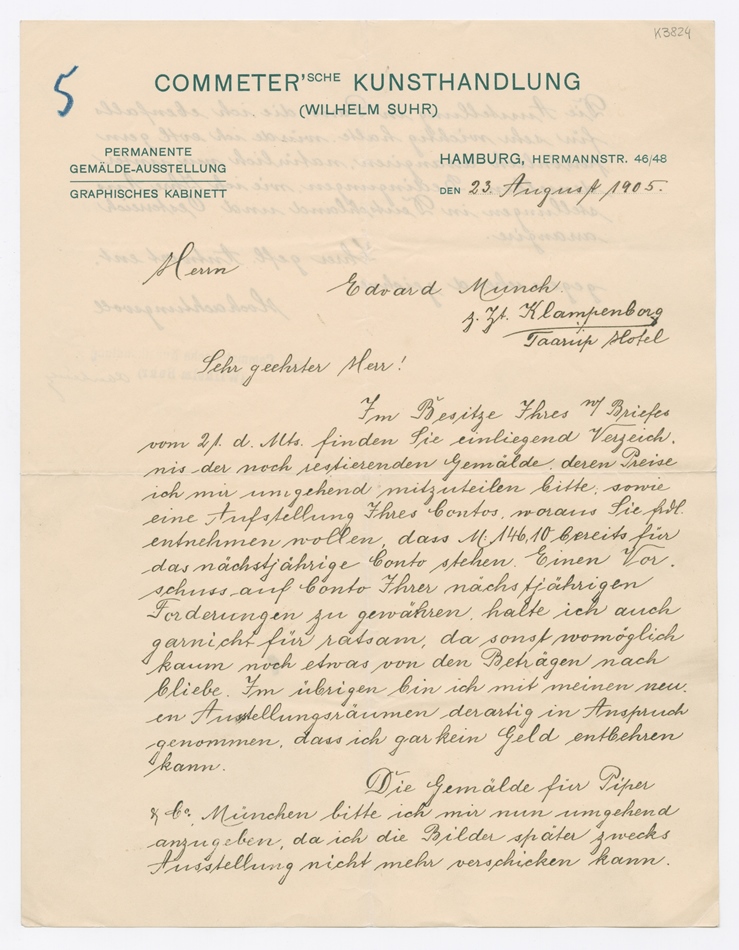 K3824
5
COMMETER'SCHE KUNSTHANDLUNG
(WILHELM SUHR)
PERMANENTE
GEMÄLDE-AUSSTELLUNG
GRAPHISCHES KABINETT
HAMBURG, HERMANNSTR. 46/48
DEN 23. August 1905.
Herrn
Edvard Munch.
z. Zt. Klampenborg
Taarup Hotel
Sehr geehrter Herr!
Im Besitze Ihres w/ Briefes
vom 21. d. Mts. finden Sie einliegend Verzeich-
nis der noch restierenden Gemälde, deren Preise
ich mir umgehend mitzuteilen bitte, sowie
eine Aufstellung Ihres Contos, woraus Sie frdl.
entnehmen wollen, dass M: 146,10 bereits für
das nächstjährige Conto stehen. Einen Vor-
schuss auf Conto Ihrer nächstjährigen
Forderungen zu gewähren, halte ich auch
garnicht für ratsam, da sonst womöglich
kaum noch etwas von den Beträgen nach
bliebe. Im übrigen bin ich mit meinen neu-
en Ausstellungsräumen derartig in Anspruch
genommen, dass ich gar kein Geld entbehren
kann.
Die Gemälde für Piper
& Co. München bitte ich mir nun umgehend
anzugeben, da ich die Bilder später zwecks
Ausstellung nicht mehr verschicken kann.